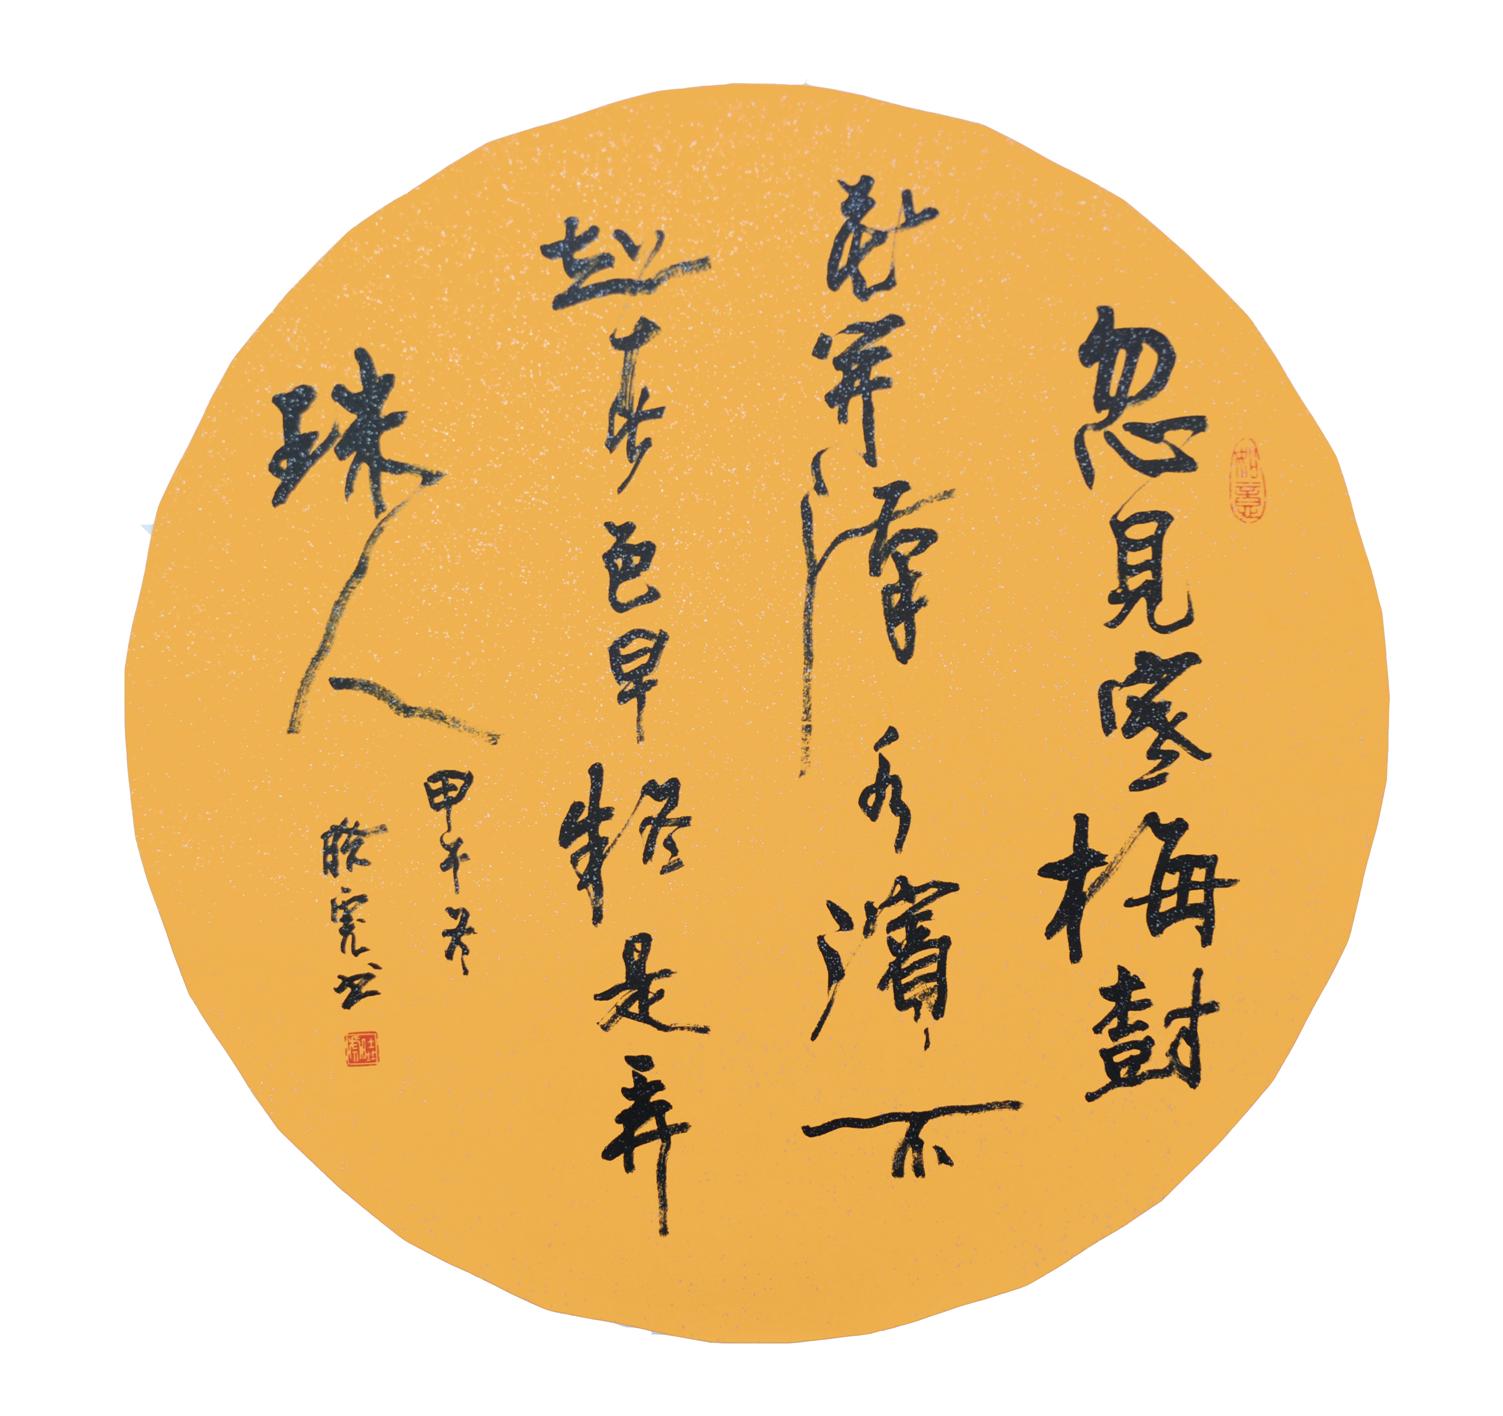 忽見寒梅樹
花開漢水濱不
知春色早疑是弄
珠人
甲午冬
书
如意